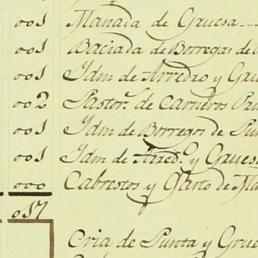 001 Manada de Gruesa
001 Baciada de Borregas de
001 Idm de Arredro y Gru
002 Pastor.s de Carneros Pri
001 Idm de Borregos de Pun
001 Idm de Arred.o y Gruesa
000 Cabrestos y Garto de Ma
017
Cria de Punta y Grue